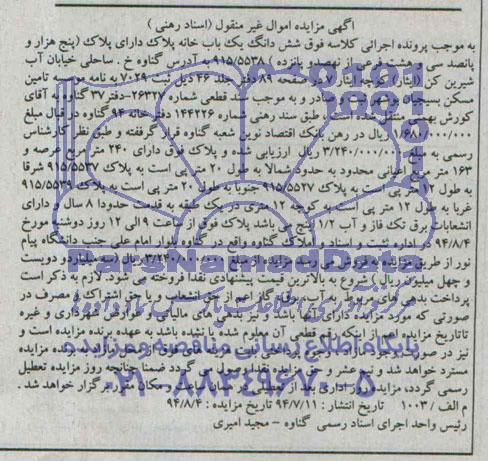 آگهی مزایده اموال غیر منقول (اسناد رهنی)
به موجب پرونده اجرائی کلاسه فوق شش دانگ یک باب خانه پلاک دارای پلاک (پنج هزار و
پانصد سی و هشت فرعی از نهصدو پانزده) ۹۱۵/۵۵۳۸ به آدرس گناوه خ. ساحلی خیابان آب
شیرین کن (ایثار) کوچه ایثار ۷ صفحه ۸۹ دفتر جلد ۴۶ ذیل ثبت ۷۰۲۹ به نامه موسسه تامین
مسکن بسیجیان بوشهر ثبت و صادر و به موجب سند قطعی شماره ۲۶۳۲۷-دفتر ۳۷ گناوه به آقای
کورش بهمنی منتقل شده است و طبق سند رهنی شماره ۱۴۴۲۲۶ دفتر خانه ۹۴ گناوه در قبال مبلغ
۱/۶۸۰/۰۰۰/۰۰۰ ریال در رهن بانک اقتصاد نوین شعبه گناوه قرار گرفته و طبق نظر کارشناس
رسمی به مبلغ ۳/۲۴۰/۰۰۰/۰۰۰ ریال ارزیابی شده و پلاک فوق دارای ۲۴۰ متر مربع عرصه و
۱۶۳ متر مربع اعیانی محدود به حدود شمالا به طول ۲۰ متر پی است به پلاک ۹۱۵/۵۵۳۷ شرقا
به طول ۱۲ متر پی است به پلاک ۹۱۵/۵۵۲۷ جنوبا به طول ۲۰ متر پی است به پلاک ۹۱۵/۵۵۳۹
غربا به طول ۱۲ متر پی است به کوچه ۱۲ متری در یک طبقه به قدمت حدودا ۸ سال و دارای
انشعابات برق تک فاز و آب ۱/۲ اینچ می باشد پلاک فوق از ساعت ۹ الی ۱۲ روز دوشنبه مورخ
۹۴/۸/۴ در اداره ثبت و اسناد و املاک گناوه واقع در گناوه بلوار امام علی جنب دانشگاه پیام
نور از طریق مزایده به فروش می رسد مزایده از مبلغ ۳/۲۴۰/۰۰۰/۰۰۰ ریال (سه میلیارد و دویست
و چهل میلیون ریال) شروع به بالاترین قیمت پیشنهادی نقدا فروخته می شود، لازم به ذکر است
پرداخت بدهی های مربوط به آب، برق، گاز اعم از حق انشعاب و یا حق اشتراک و مصرف در
صورتی که مورد مزایده دارای آنها باشد و نیز بدهی های مالیاتی و عوارض شهرداری و غیره
تاتاریخ مزایده اعم از اینکه رقم قطعی آن معلوم شده یا نشده باشد به عهده برنده مزایده است و
نیز در صورت وجود مازاد، وجوه پرداختی بابت هزینه های فوق از محل مازاد به برنده مزایده
مسترد خواهد شد و نیم عشر و حق مزایده نقدا وصول می گردد ضمنا چنانچه روز مزایده تعطیل
رسمی گردد، مزایده روز اداری بعد از تعطیلی در همان ساعت و مکان مقرر برگزار خواهد شد.
م الف / ۱۰۰۳ تاریخ انتشار: ۹۴/۷/۱۱ تاریخ مزایده: ۹۴/۸/۴
رئیس واحد اجرای اسناد رسمی گناوه – مجید امیری
ParsNamadData
پایگاه اطلاع رسانی مناقصه و مزایده
۰۲۱-۸۸۳۴۹۶۷۰-۵